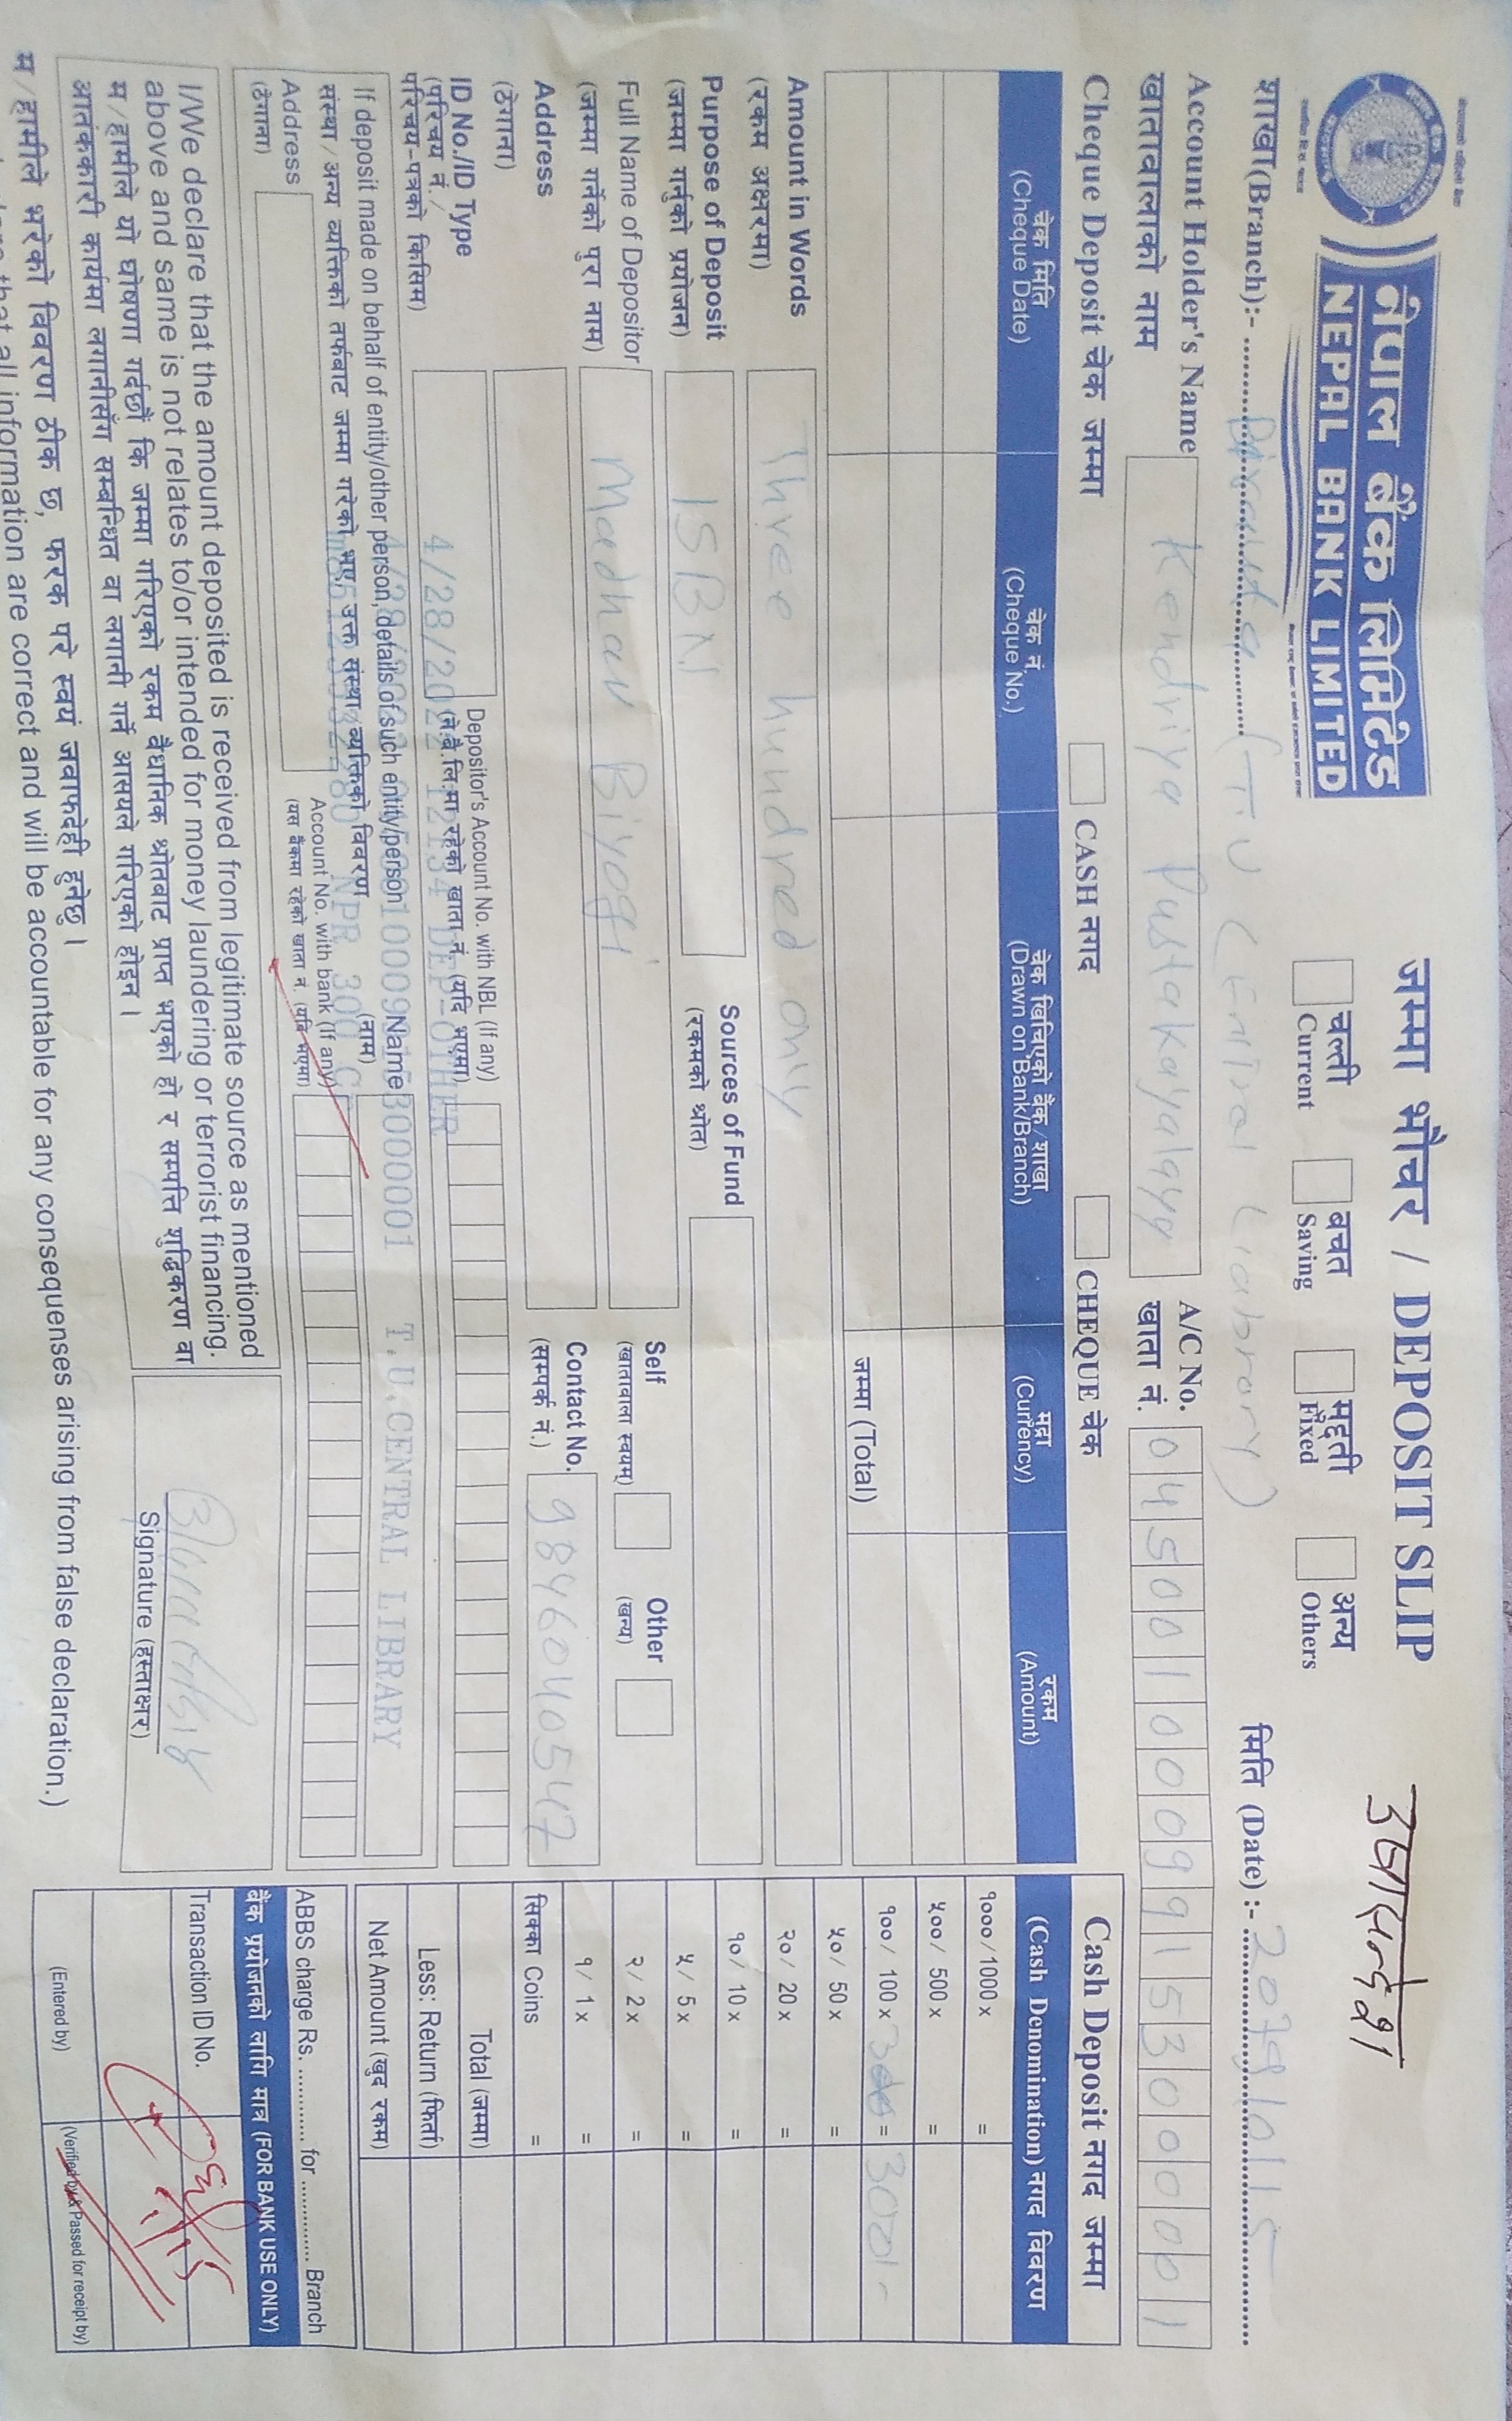 नेपाल बैंक लिमिटेड
NEPAL BANK LIMITED
जम्मा भौचर / DEPOSIT SLIP
चल्ती बचत मुद्दती अन्य
Current Saving Fixed Others
शाखा(Branch):- (T.U Central Liabrary)
मिति (Date) :- 2079/01/15
Account Holder's Name Kendriya Pustakayalaya A/C No. 04500100099153000001
खातावालाको नाम खाता नं.
Cheque Deposit चेक जम्मा CASH नगद CHEQUE चेक
चेक मिति चेक नं. चेक खिचिएको बैंक/शाखा मुद्रा रकम
(Cheque Date) (Cheque No.) (Drawn on Bank/Branch) (Currency) (Amount)
जम्मा (Total)
Cash Deposit नगद जम्मा
(Cash Denomination) नगद विवरण
१०००/1000 x =
५००/ 500 x =
१००/ 100 x = 300/-
५०/ 50 x =
२०/ 20 x =
१०/ 10 x =
५/ 5 x =
२/ 2 x =
१/ 1 x =
सिक्का Coins =
Total (जम्मा)
Less: Return (फिर्ता)
Net Amount (खुद रकम)
Amount in Words Three hundred only
(रकम अक्षरमा)
Purpose of Deposit ISBN Sources of Fund
(जम्मा गर्नुको प्रयोजन) (रकमको श्रोत)
Full Name of Depositor Madhav Biyogi Self Other
(जम्मा गर्नेको पुरा नाम) (खातावाला स्वयम्) (अन्य)
Address Contact No. 9846040547
(ठेगाना) (सम्पर्क नं.)
ID No./ID Type Depositor's Account No. with NBL (If any)
(परिचय नं./ (ने.बै.लि.मा रहेको खाता नं. (यदि भएमा)
परिचय-पत्रको किसिम)
4/28/2022 12134 DEP-OTHER
If deposit made on behalf of entity/other person,details of such entity/person Name
संस्था/अन्य व्यक्तिको तर्फबाट जम्मा गरेको भए, उक्त संस्था/व्यक्तिको विवरण (नाम)
T.U.CENTRAL LIBRARY
NPR 300
Address Account No. with bank (If any)
(ठेगाना) (यस बैंकमा रहेको खाता नं. (यदि भएमा)
I/We declare that the amount deposited is received from legitimate source as mentioned
above and same is not relates to/or intended for money laundering or terrorist financing.
म/हामीले यो घोषणा गर्दछौं कि जम्मा गरिएको रकम वैधानिक श्रोतबाट प्राप्त भएको हो र सम्पत्ति शुद्धिकरण वा
आतंककारी कार्यमा लगानीसँग सम्बन्धित वा लगानी गर्ने आसयले गरिएको होइन ।
Signature (हस्ताक्षर)
म/हामीले भरेको विवरण ठीक छ, फरक परे स्वयं जवाफदेही हुनेछु ।
that all information are correct and will be accountable for any consequenses arising from false declaration.)
ABBS charge Rs. ............ for ............ Branch
बैंक प्रयोजनको लागि मात्र (FOR BANK USE ONLY)
Transaction ID No.
(Entered by) (Verified by & Passed for receipt by)